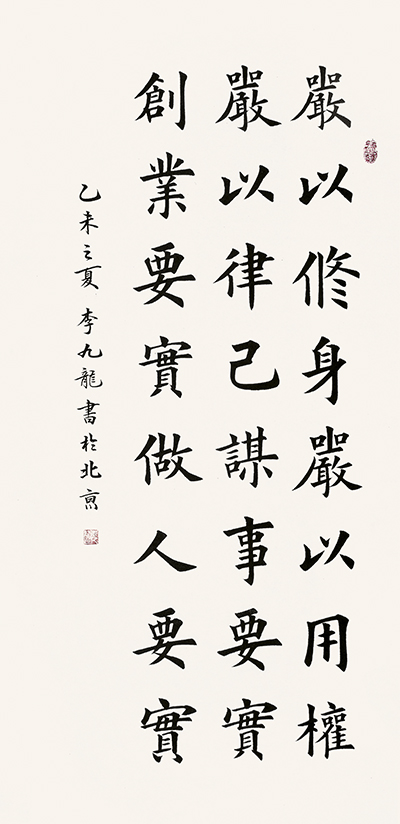 嚴以修身嚴以用權
嚴以律己謀事要實
創業要實做人要實
乙未之夏李九龍書於北京